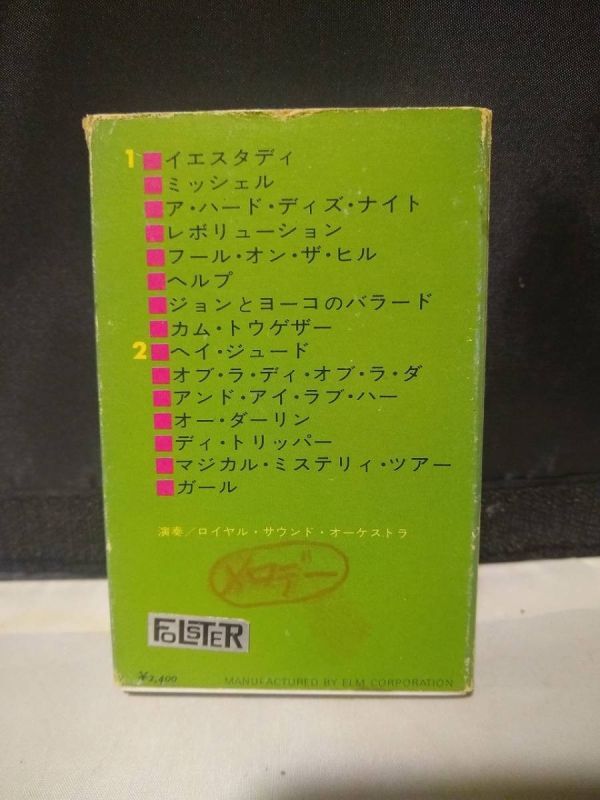 1 イエスタディ
ミッシェル
ア・ハード・ディズ・ナイト
レボリューション
フール・オン・ザ・ヒル
ヘルプ
ジョンとヨーコのバラード
カム・トウゲザー
2 ヘイ・ジュード
オブ・ラ・ディ・オブ・ラ・ダ
アンド・アイ・ラブ・ハー
オー・ダーリン
ディ・トリッパー
マジカル・ミステリィ・ツアー
ガール
演奏/ロイヤル・サウンド・オーケストラ
メロデー
FOLSTER
¥2,400 MANUFACTURED BY ELM CORPORATION